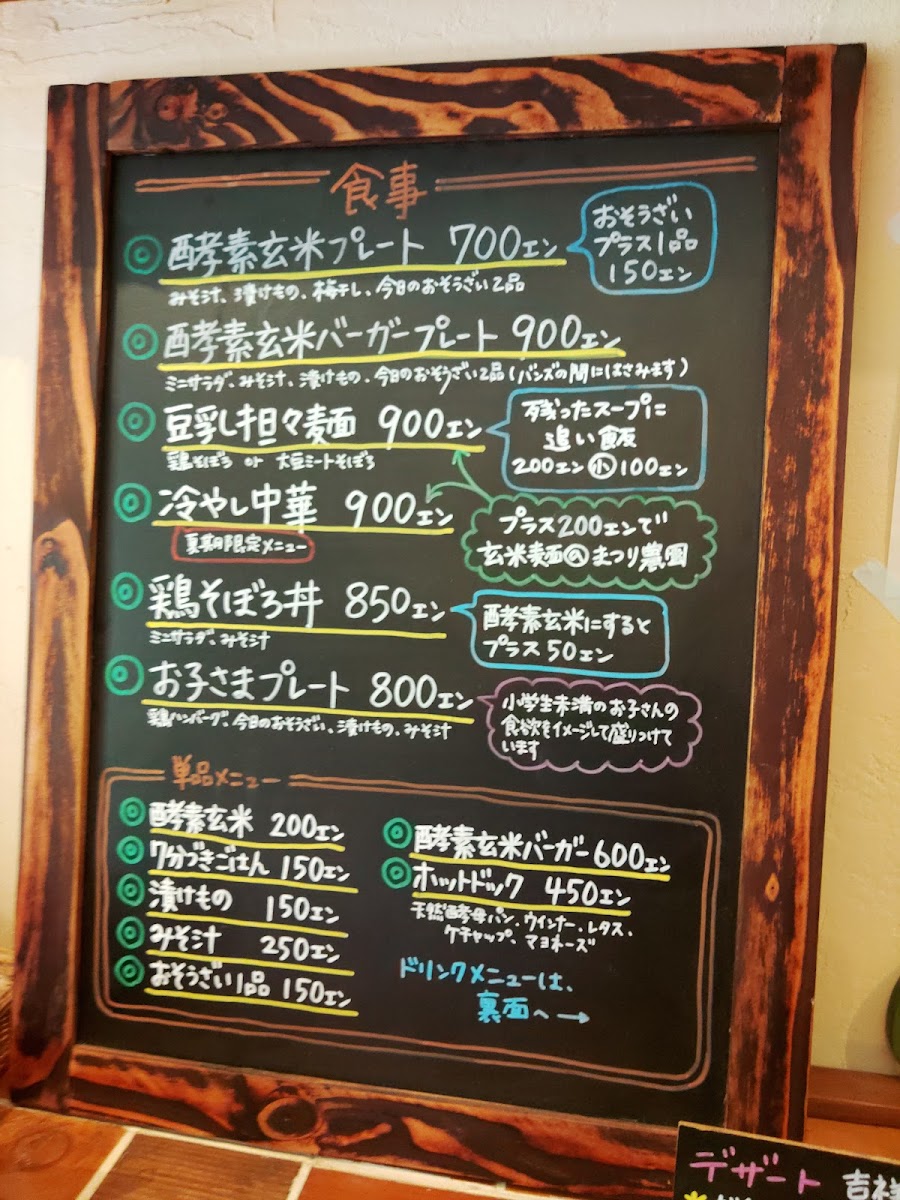 食事
酵素玄米プレート 700エン
みそ汁、漬けもの、梅干し、今日のおそうざい2品
おそうざい
プラス1品
150エン
酵素玄米バーガープレート 900エン
ミニサラダ、みそ汁、漬けもの、今日のおそうざい2品(バンズの間にはさみます)
豆乳し担々麺 900エン
鶏そぼろ or 大豆ミートそぼろ
残ったスープに
追い飯
200エン 小 100エン
冷やし中華 900エン
夏期限定メニュー
プラス200エンで
玄米麺へ まつり農園
鶏そぼろ丼 850エン
ミニサラダ、みそ汁
酵素玄米にすると
プラス50エン
お子さまプレート 800エン
鶏ハンバーグ、今日のおそうざい、漬けもの、みそ汁
小学生未満のお子さんの
食欲をイメージして盛りつけ
ています
単品メニュー
酵素玄米 200エン
7分づきごはん 150エン
漬けもの 150エン
みそ汁 250エン
おそうざい1品 150エン
酵素玄米バーガー600エン
ホットドック 450エン
天然酵母パン、ウインナー、レタス、
ケチャップ、マヨネーズ
ドリンクメニューは、
裏面へ→
デザート